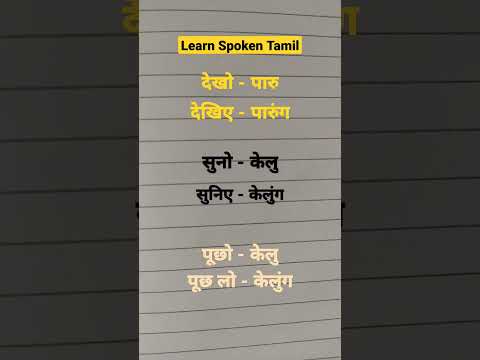 Learn Spoken Tamil
देखो - पारु
देखिए - पारुंग
सुनो - केलु
सुनिए - केलुंग
पूछो - केलु
पूछ लो - केलुंग